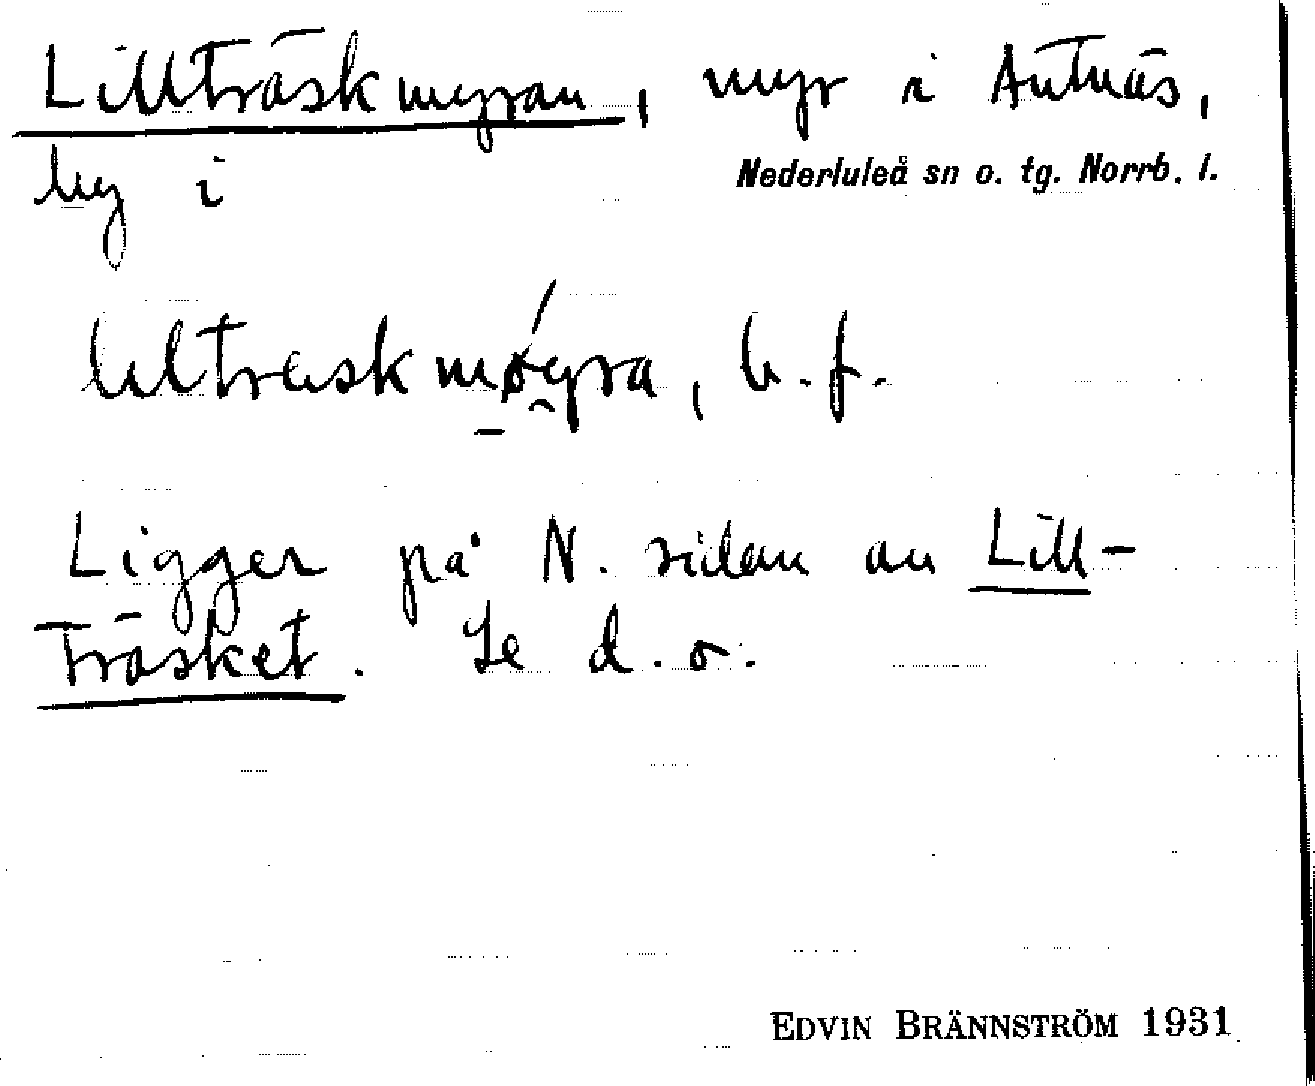 Lillträskmyran, myr i Antnäs,
by i Nederluleå sn o. tg. Norrb. l.
liltraskmøyra, b. f.
Ligger på N. sidan av Lill-
träsket. Se d. o.
EDVIN BRÄNNSTRÖM 1931